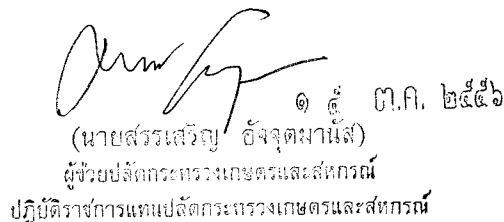 ๑ ๕ ต.ค. ๒๕๕๖
(นายสรรเสริญ อัจจุตมานัส)
ผู้ช่วยปลัดกระทรวงเกษตรและสหกรณ์
ปฏิบัติราชการแทนปลัดกระทรวงเกษตรและสหกรณ์